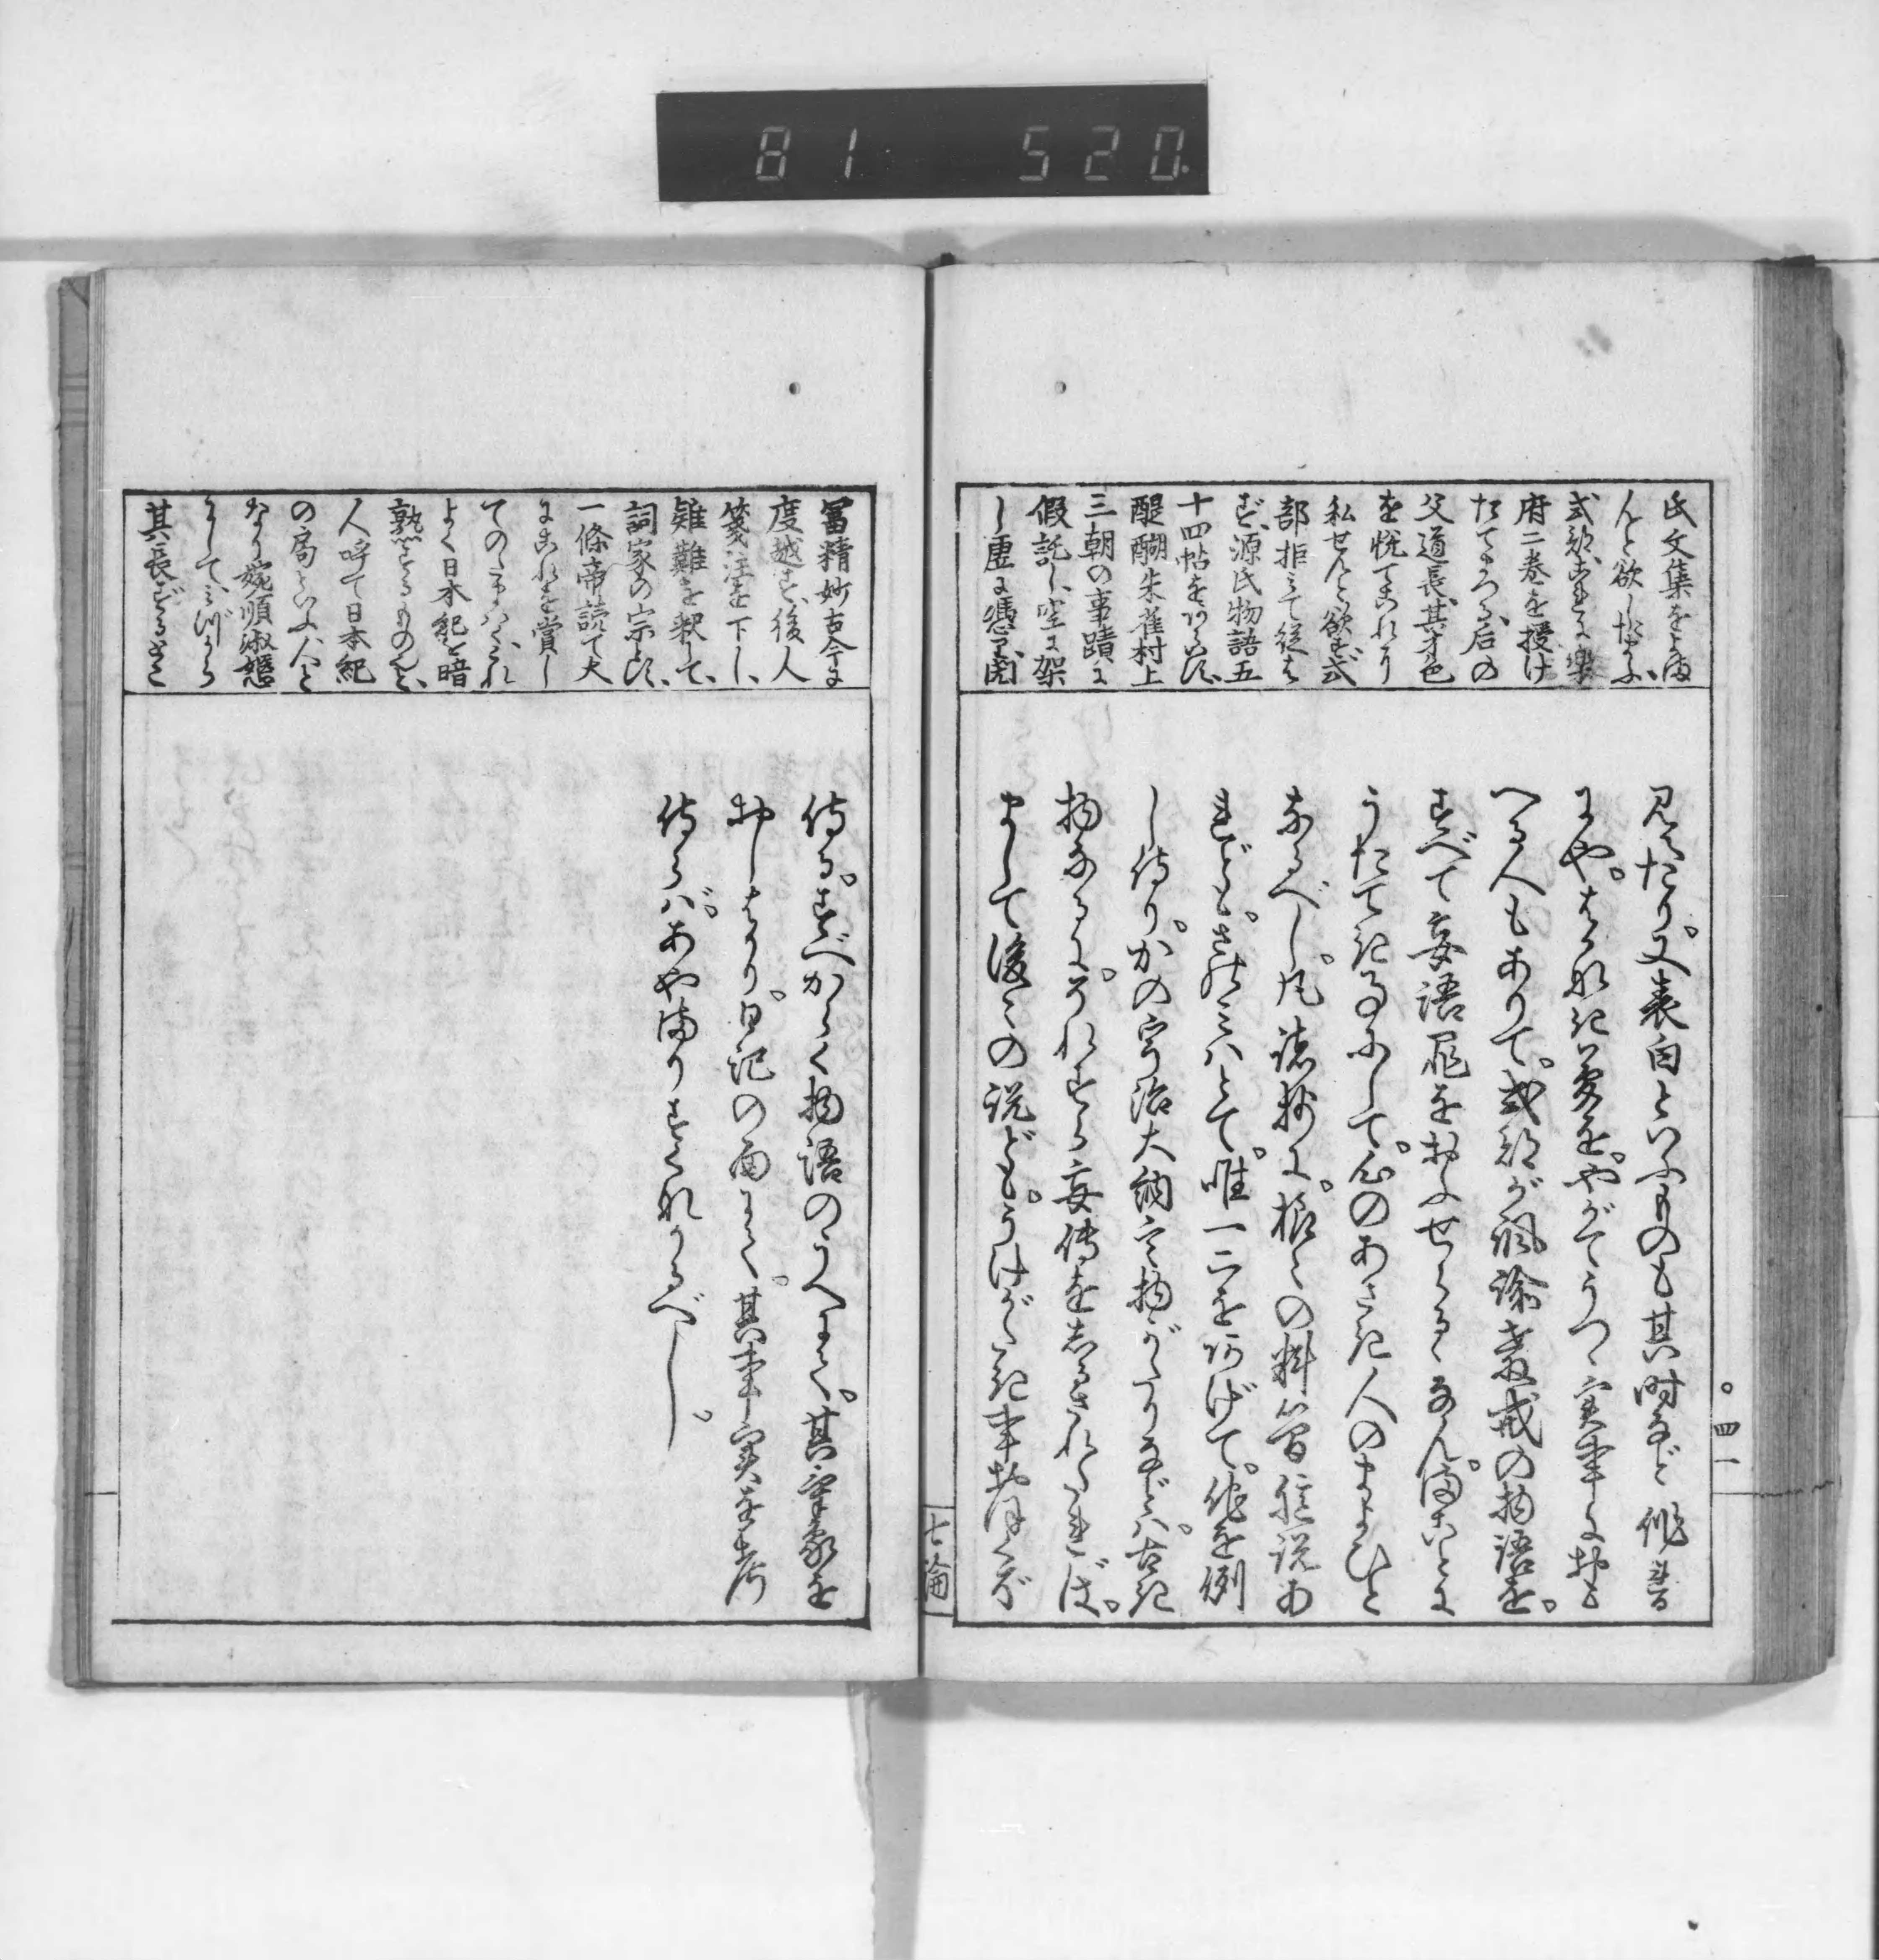 81 520
氏文集をよま
んと欲し給ふ、
式部これに楽
府二巻を授け
たてまつる、后の
父道長、其才色
を悦てこれに
私せんと欲ず、式
部拒みて従は
ず、源氏物語五
十四帖をあらはす、
醍醐朱雀村上
三朝の事蹟に
假託し、空に架
し虚に憑
冨精妙古今に
度越す、後人
箋注を下し、
疑難を釈て、
詞家の宗とす、
一條帝読て大
にこれを賞し
てのたまはく、これ
よく日本紀を暗
熟せるもの也と、
人呼て日本紀
の局といふ、人と
なり婉順淑慝
にして、みづから
其長ずるところ
見えたり。又表白といふものも其時など作書
にや。はかなき夢を。やがてうつゝ実事におも
へる人もありて。式部が諷諭教戒の物語を。
すべて妄語罪をおふせらるゝなん。まことに
うたてき事にして。心のあさき人のまよひと
なるべし。凡諸抄に。様々の料簡臆説あ
れども。さのみはとて。唯一二をあげて。他を例
し侍り。かの宇治大納言物がたりなどは。古記
物なるに。それすら妄傳をしるされたれば。
まして後々の説ども。うけがたき事おほくぞ
侍る。すべからく物語のうへにて。其筆象を
おしはかり。日記の面にて。其事実を考
侍らば。あやまりすくなかるべし。
四一
七論